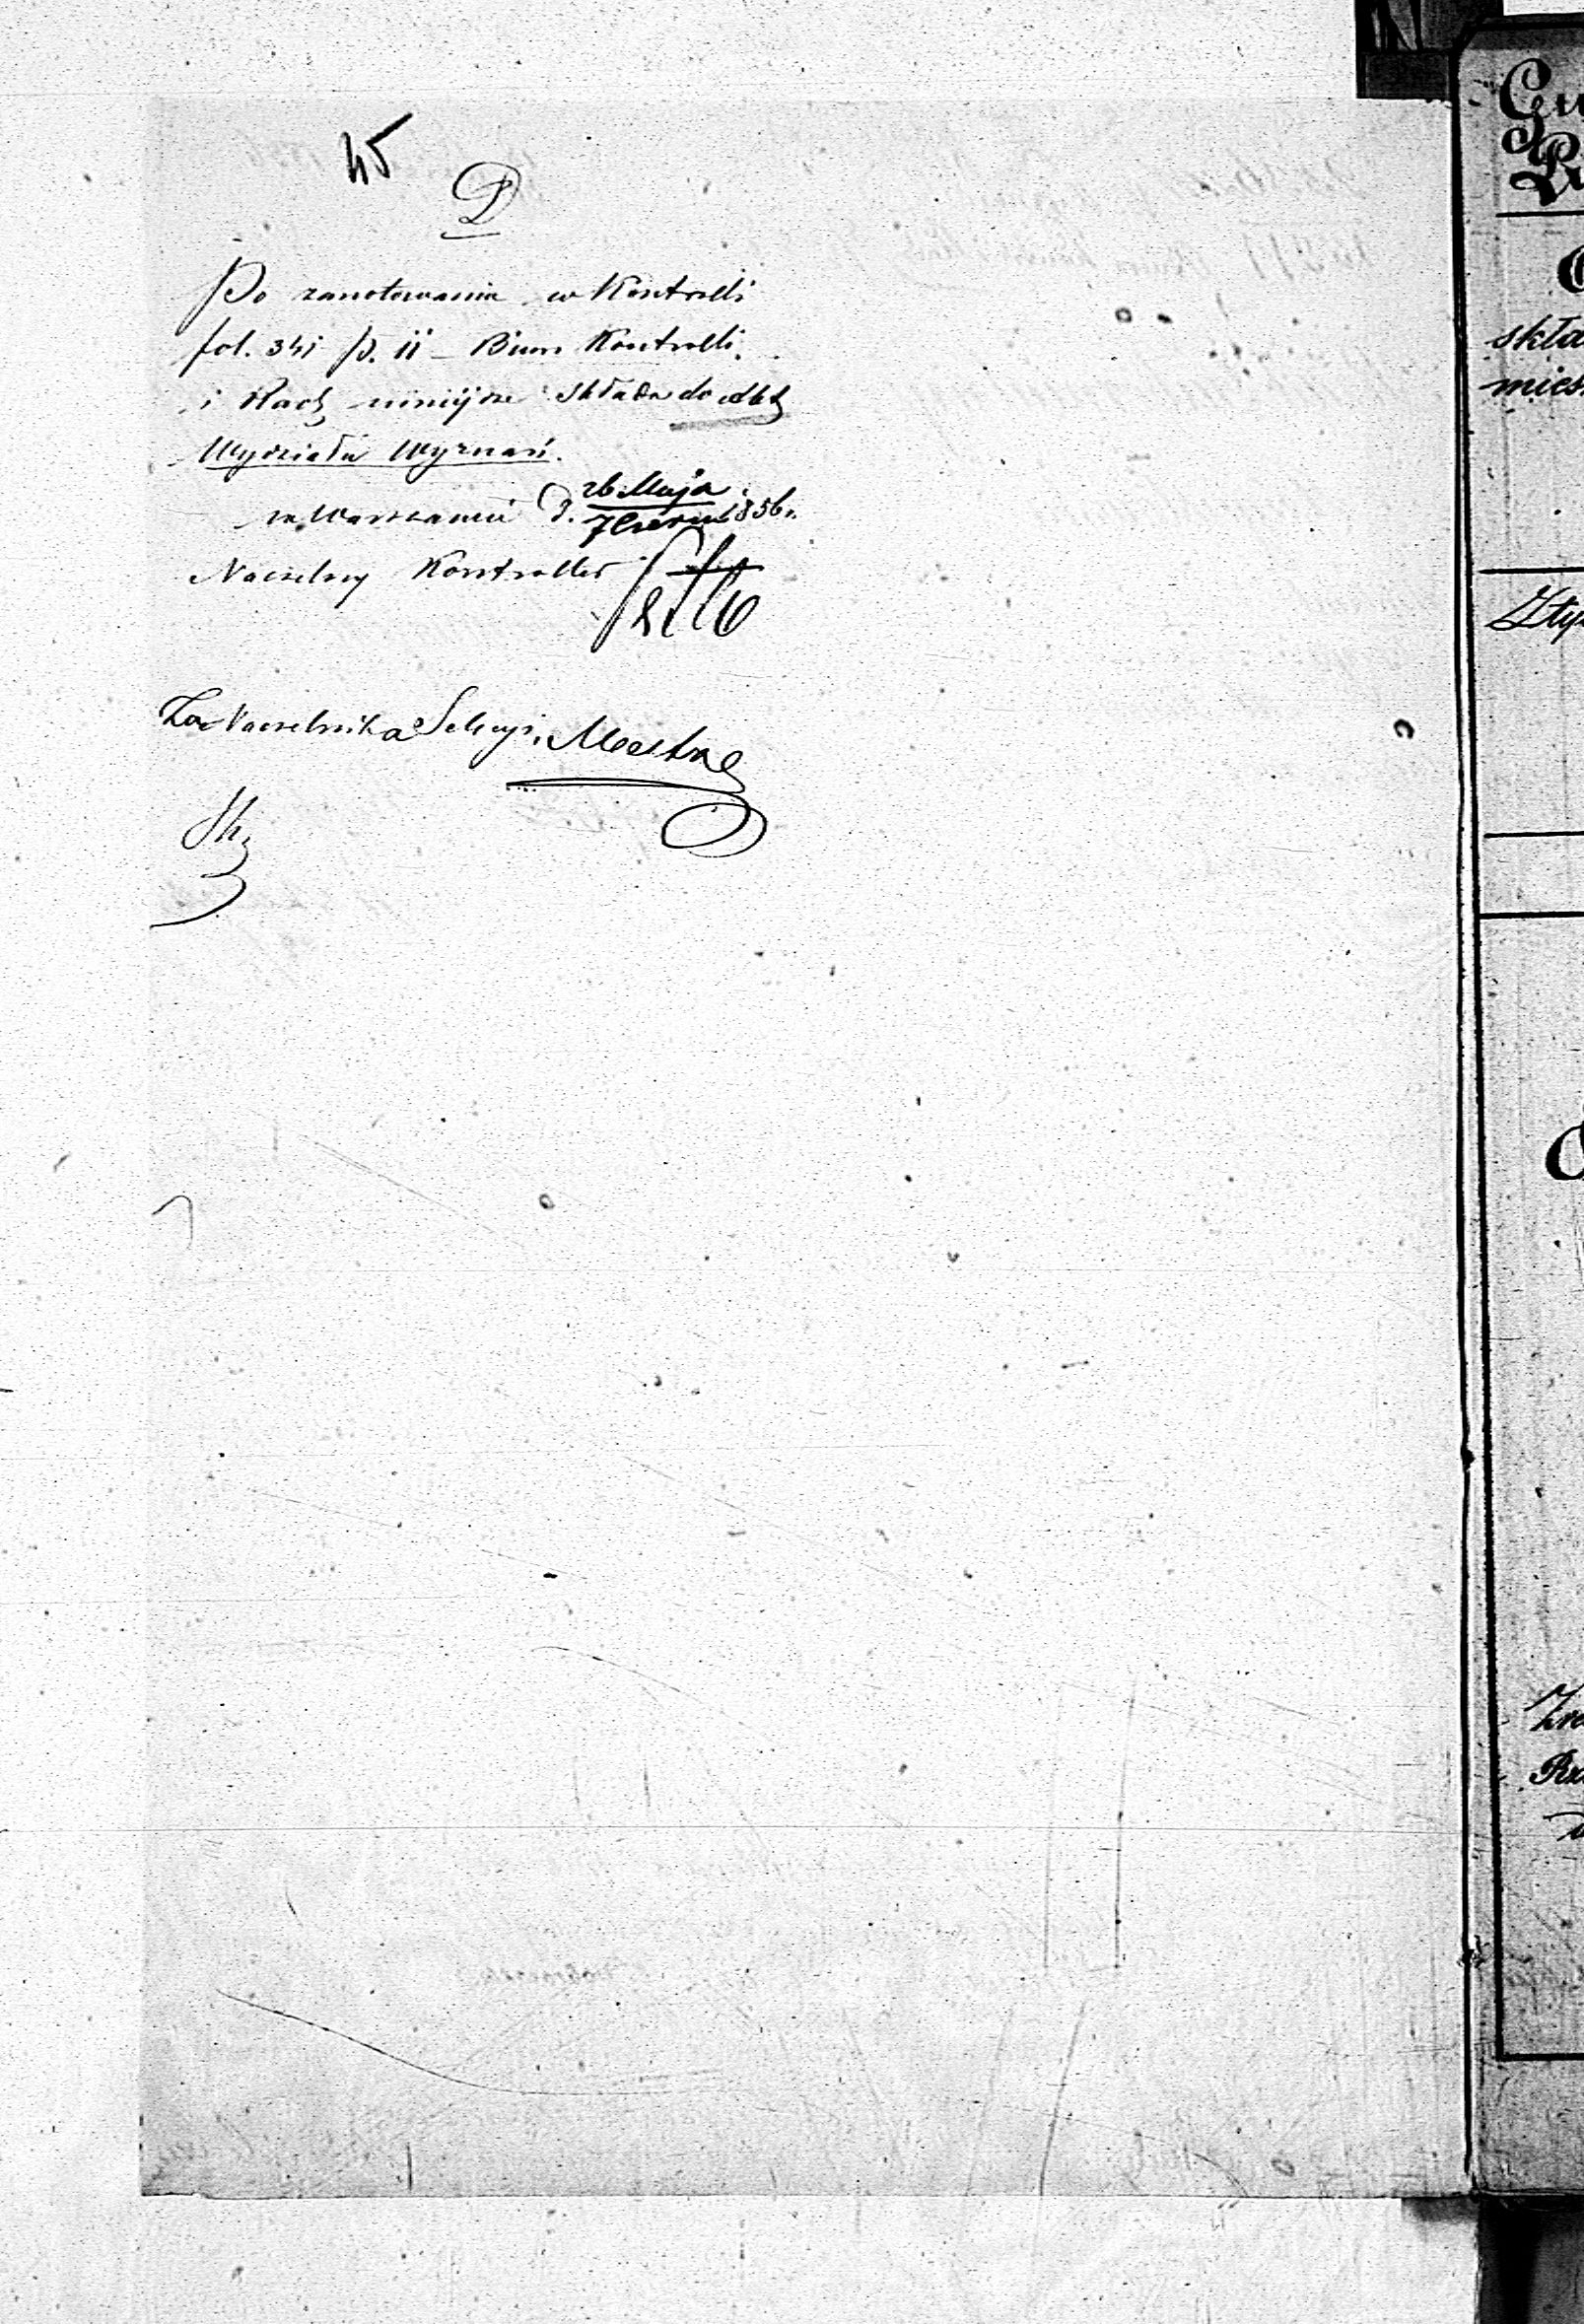 45
D
Po zanotowaniu w Kontrolli
fol. 341 p. 11 – Biuro Kontrolli
i Rach niniejsze składa do
Wydziału Wyznań.
w Warszawie d. 26 Maja
7 Czerw 1856 r.
Naczelny Kontroller
Za Naczelnika Sekcyi,
Gu
skła
mies
Zty
Rz